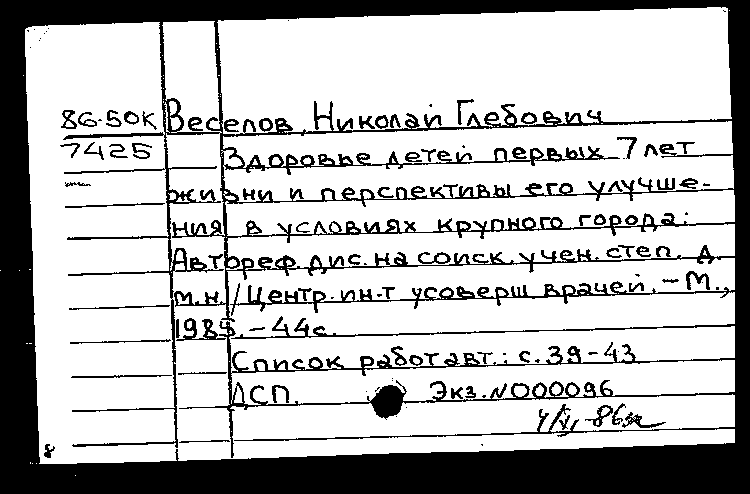 86-50К Веселов, Николай Глебович
7425 Здоровье детей первых 7 лет
жизни и перспективы его улучше-
ния в условиях крупного города:
Автореф. дис. на соиск. учен. степ. д.
м.н. / Центр. ин-т усоверш. врачей. – М.,
1985. – 44с.
Список работ авт.: с. 39-43
ДСП. Экз. N000096
8